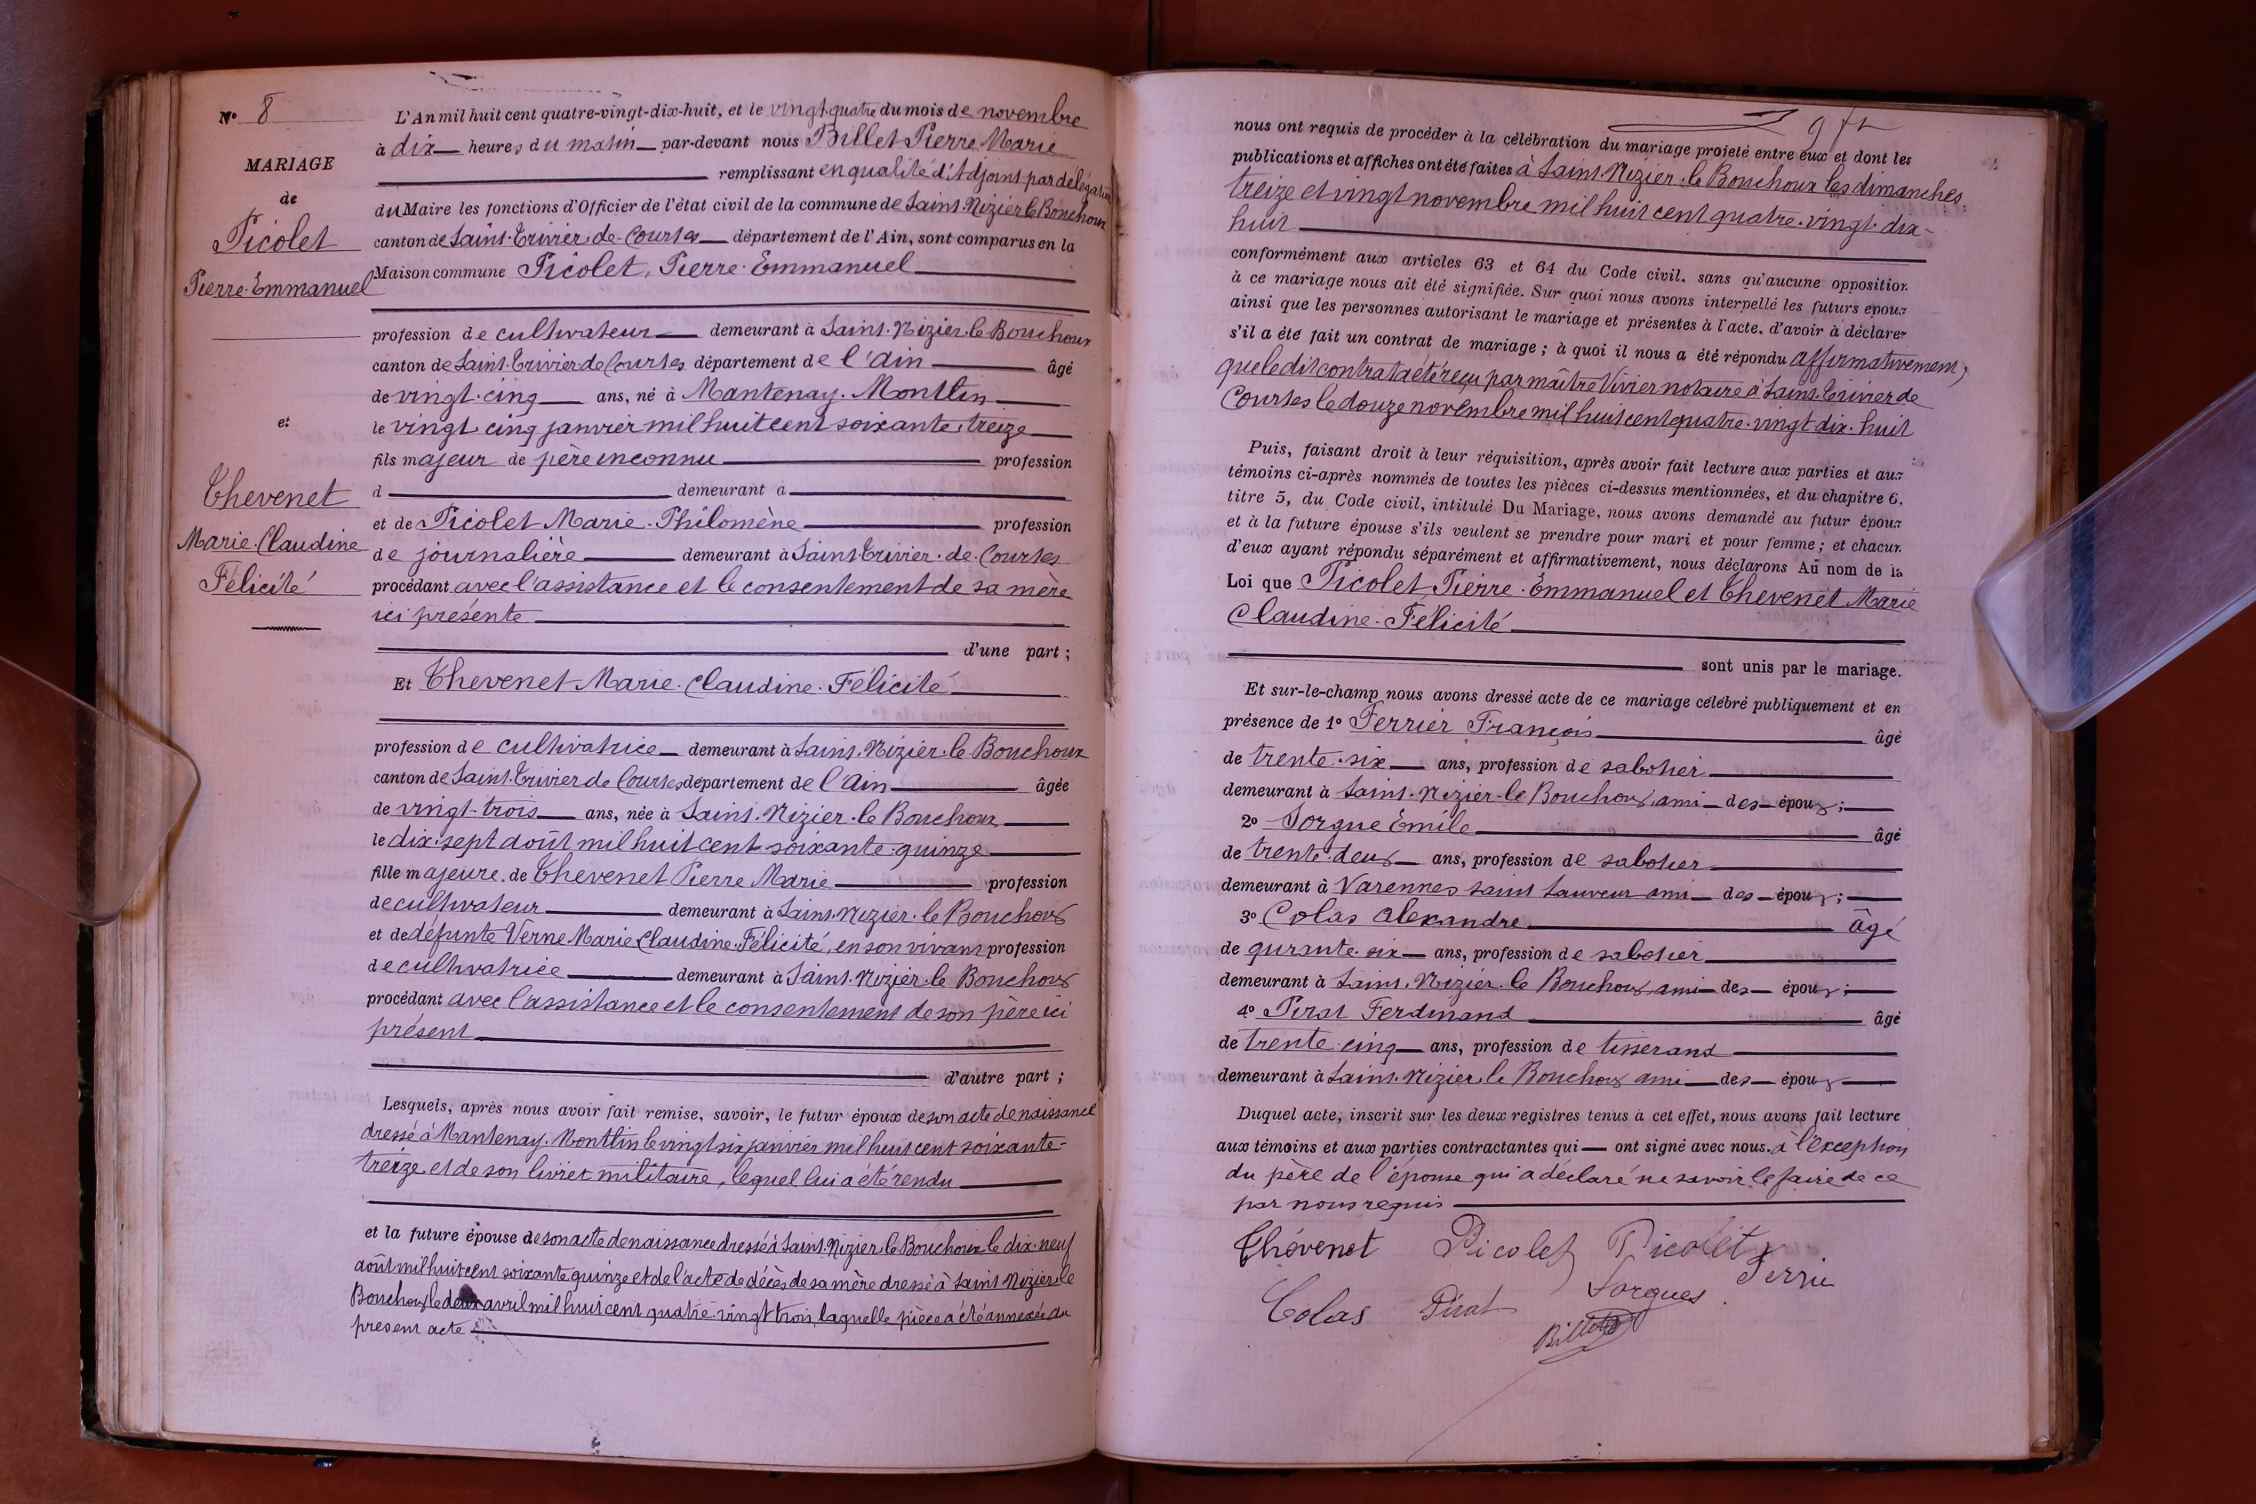 N° 8
MARIAGE
de
Picolet
Pierre-Emmanuel
et
Thevenet
Marie-Claudine
Félicité
L'An mil huit cent quatre-vingt-dix-huit, et le vingt-quatre du mois de novembre
à dix heures du matin par-devant nous Billet Pierre Marie
remplissant en qualité d'Adjoint par délégation
du Maire les fonctions d'Officier de l'état civil de la commune de Saint-Nizier le Bouchoux
canton de Saint-Trivier-de-Courtes département de l'Ain, sont comparus en la
Maison commune Picolet, Pierre-Emmanuel
profession de cultivateur demeurant à Saint-Nizier-le-Bouchoux
canton de Saint-Trivier de Courtes département de l'Ain âgé
de vingt-cinq ans, né à Mantenay-Montlin
le vingt cinq janvier mil huit cent soixante-treize
fils majeur de père inconnu profession
d demeurant à
et de Picolet Marie-Philomène profession
de journalière demeurant à Saint-Trivier-de-Courtes
procédant avec l'assistance et le consentement de sa mère
ici présente
d'une part ;
Et Thevenet Marie-Claudine-Félicité
profession de cultivatrice demeurant à Saint-Nizier-le Bouchoux
canton de Saint-Trivier de Courtes département de l'Ain âgée
de vingt-trois ans, née à Saint-Nizier-le Bouchoux
le dix-sept août mil huit cent soixante-quinze
fille majeure de Thevenet Pierre Marie profession
de cultivateur demeurant à Saint-Nizier-le Bouchoux
et de défunte Verne Marie Claudine-Félicité, en son vivant profession
de cultivatrice demeurant à Saint-Nizier-le Bouchoux
procédant avec l'assistance et le consentement de son père ici
présent
d'autre part ;
Lesquels, après nous avoir fait remise, savoir, le futur époux de son acte de naissance
dressé à Mantenay-Montlin le vingt six janvier mil huit cent soixante-
treize et de son livret militaire, lequel lui a été rendu
et la future épouse de son acte de naissance dressé à Saint-Nizier-le-Bouchoux le dix-neuf
août mil huit cent soixante quinze et de l'acte de décès de sa mère dressé à Saint Nizier-le
Bouchoux le deux avril mil huit cent quatre-vingt trois, laquelle pièce a été annexée au
présent acte
nous ont requis de procéder à la célébration du mariage projeté entre eux et dont les
publications et affiches ont été faites à Saint-Nizier-le Bouchoux les dimanches
treize et vingt novembre mil huit cent quatre-vingt-dix-
huit
conformément aux articles 63 et 64 du Code civil, sans qu'aucune opposition
à ce mariage nous ait été signifiée. Sur quoi nous avons interpellé les futurs époux
ainsi que les personnes autorisant le mariage et présentes à l'acte, d'avoir à déclarer
s'il a été fait un contrat de mariage ; à quoi il nous a été répondu affirmativement,
que ledit contrat a été reçu par maître Vivier notaire à Saint-Trivier de
Courtes le douze novembre mil huit cent quatre-vingt-dix-huit
Puis, faisant droit à leur réquisition, après avoir fait lecture aux parties et aux
témoins ci-après nommés de toutes les pièces ci-dessus mentionnées, et du chapitre 6,
titre 5, du Code civil, intitulé Du Mariage, nous avons demandé au futur époux
et à la future épouse s'ils veulent se prendre pour mari et pour femme ; et chacun
d'eux ayant répondu séparément et affirmativement, nous déclarons Au nom de la
Loi que Picolet, Pierre-Emmanuel et Thevenet Marie
Claudine-Félicité
sont unis par le mariage.
Et sur-le-champ nous avons dressé acte de ce mariage célébré publiquement et en
présence de 1° Perrier François âgé
de trente-six ans, profession de sabotier
demeurant à Saint-Nizier-le Bouchoux ami des époux ;
2° Sorgue Emile âgé
de trente-deux ans, profession de sabotier
demeurant à Varennes saint Sauveur ami des époux ;
3° Colas Alexandre âgé
de qurante-six ans, profession de sabotier
demeurant à Saint-Nizier-le Bouchoux ami des époux ;
4° Pirat Ferdinand âgé
de trente-cinq ans, profession de tisserand
demeurant à Saint-Nizier-le Bouchoux ami des époux
Duquel acte, inscrit sur les deux registres tenus à cet effet, nous avons fait lecture
aux témoins et aux parties contractantes qui ont signé avec nous. à l'exception
du père de l'épouse qui a déclaré ne savoir le faire de ce
par nous requis
Thévenet Picolet Picolet
Perrier
Sorgues
Colas Pirat
Billet